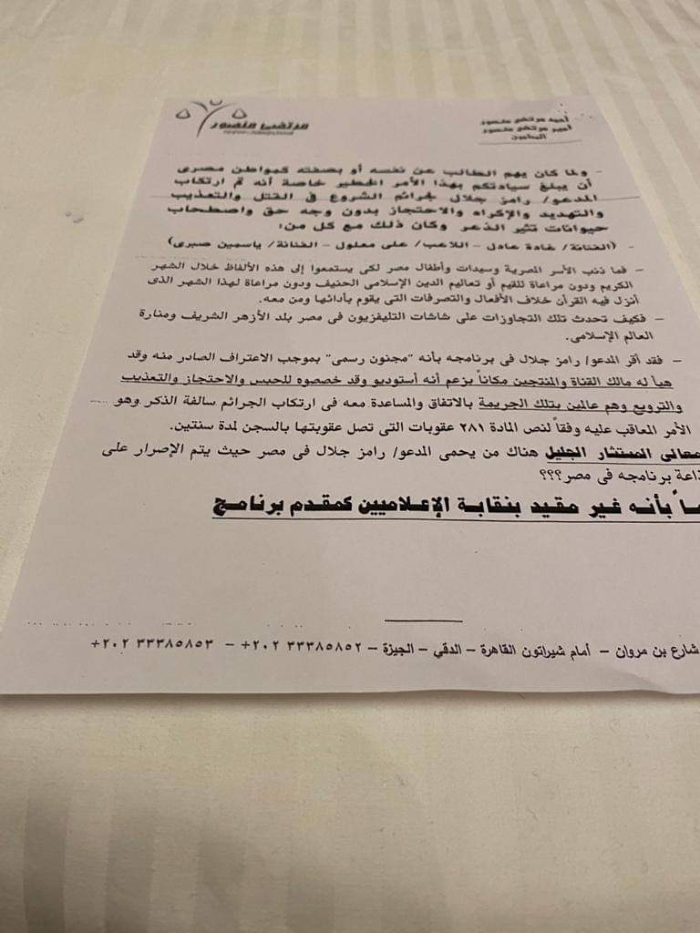 مرتضى منصور
أحمد مرتضى منصور
أمير مرتضى منصور
المحامون
- ولما كان يهم الطالب عن نفسه أو بصفته كمواطن مصرى
أن يبلغ سيادتكم بهذا الأمر الخطير خاصة أنه تم ارتكاب
المدعو/ رامز جلال لجرائم الشروع فى القتل والتعذيب
والتهديد والإكراه والاحتجاز بدون وجه حق واصطحاب
حيوانات تثير الذعر وكان ذلك مع كل من:
- (الفنانة/ غادة عادل - اللاعب/ على معلول - الفنانة/ ياسمين صبرى)
- فما ذنب الأسر المصرية وسيدات وأطفال مصر لكى يستمعوا إلى هذه الألفاظ خلال الشهر
الكريم ودون مراعاة للقيم أو تعاليم الدين الإسلامى الحنيف ودون مراعاة لهذا الشهر الذى
أنزل فيه القرآن خلاف الأفعال والتصرفات التى يقوم بأدائها ومن معه.
- فكيف تحدث تلك التجاوزات على شاشات التليفزيون فى مصر بلد الأزهر الشريف ومنارة
العالم الإسلامى.
- فقد أقر المدعو/ رامز جلال فى برنامجه بأنه "مجنون رسمى" بموجب الاعتراف الصادر منه وقد
هيأ له مالك القناة والمنتجين مكاناً بزعم أنه أستوديو وقد خصصوه للحبس والاحتجاز والتعذيب
والترويع وهم عالمين بتلك الجريمة بالاتفاق والمساعدة معه فى ارتكاب الجرائم سالفة الذكر وهو
الأمر المعاقب عليه وفقاً لنص المادة ٢٨١ عقوبات التى تصل عقوبتها بالسجن لمدة سنتين.
معالى المستشار الجليل هناك من يحمى المدعو/ رامز جلال فى مصر حيث يتم الإصرار على
ذاعة برنامجه فى مصر؟؟؟
ماً بأنه غير مقيد بنقابة الإعلاميين كمقدم برنامج
شارع بن مروان - أمام شيراتون القاهرة - الدقي - الجيزة - ٣٣٣٨٥٨٥٢ ٢٠٢+ - ٣٣٣٨٥٨٥٣ ٢٠٢+